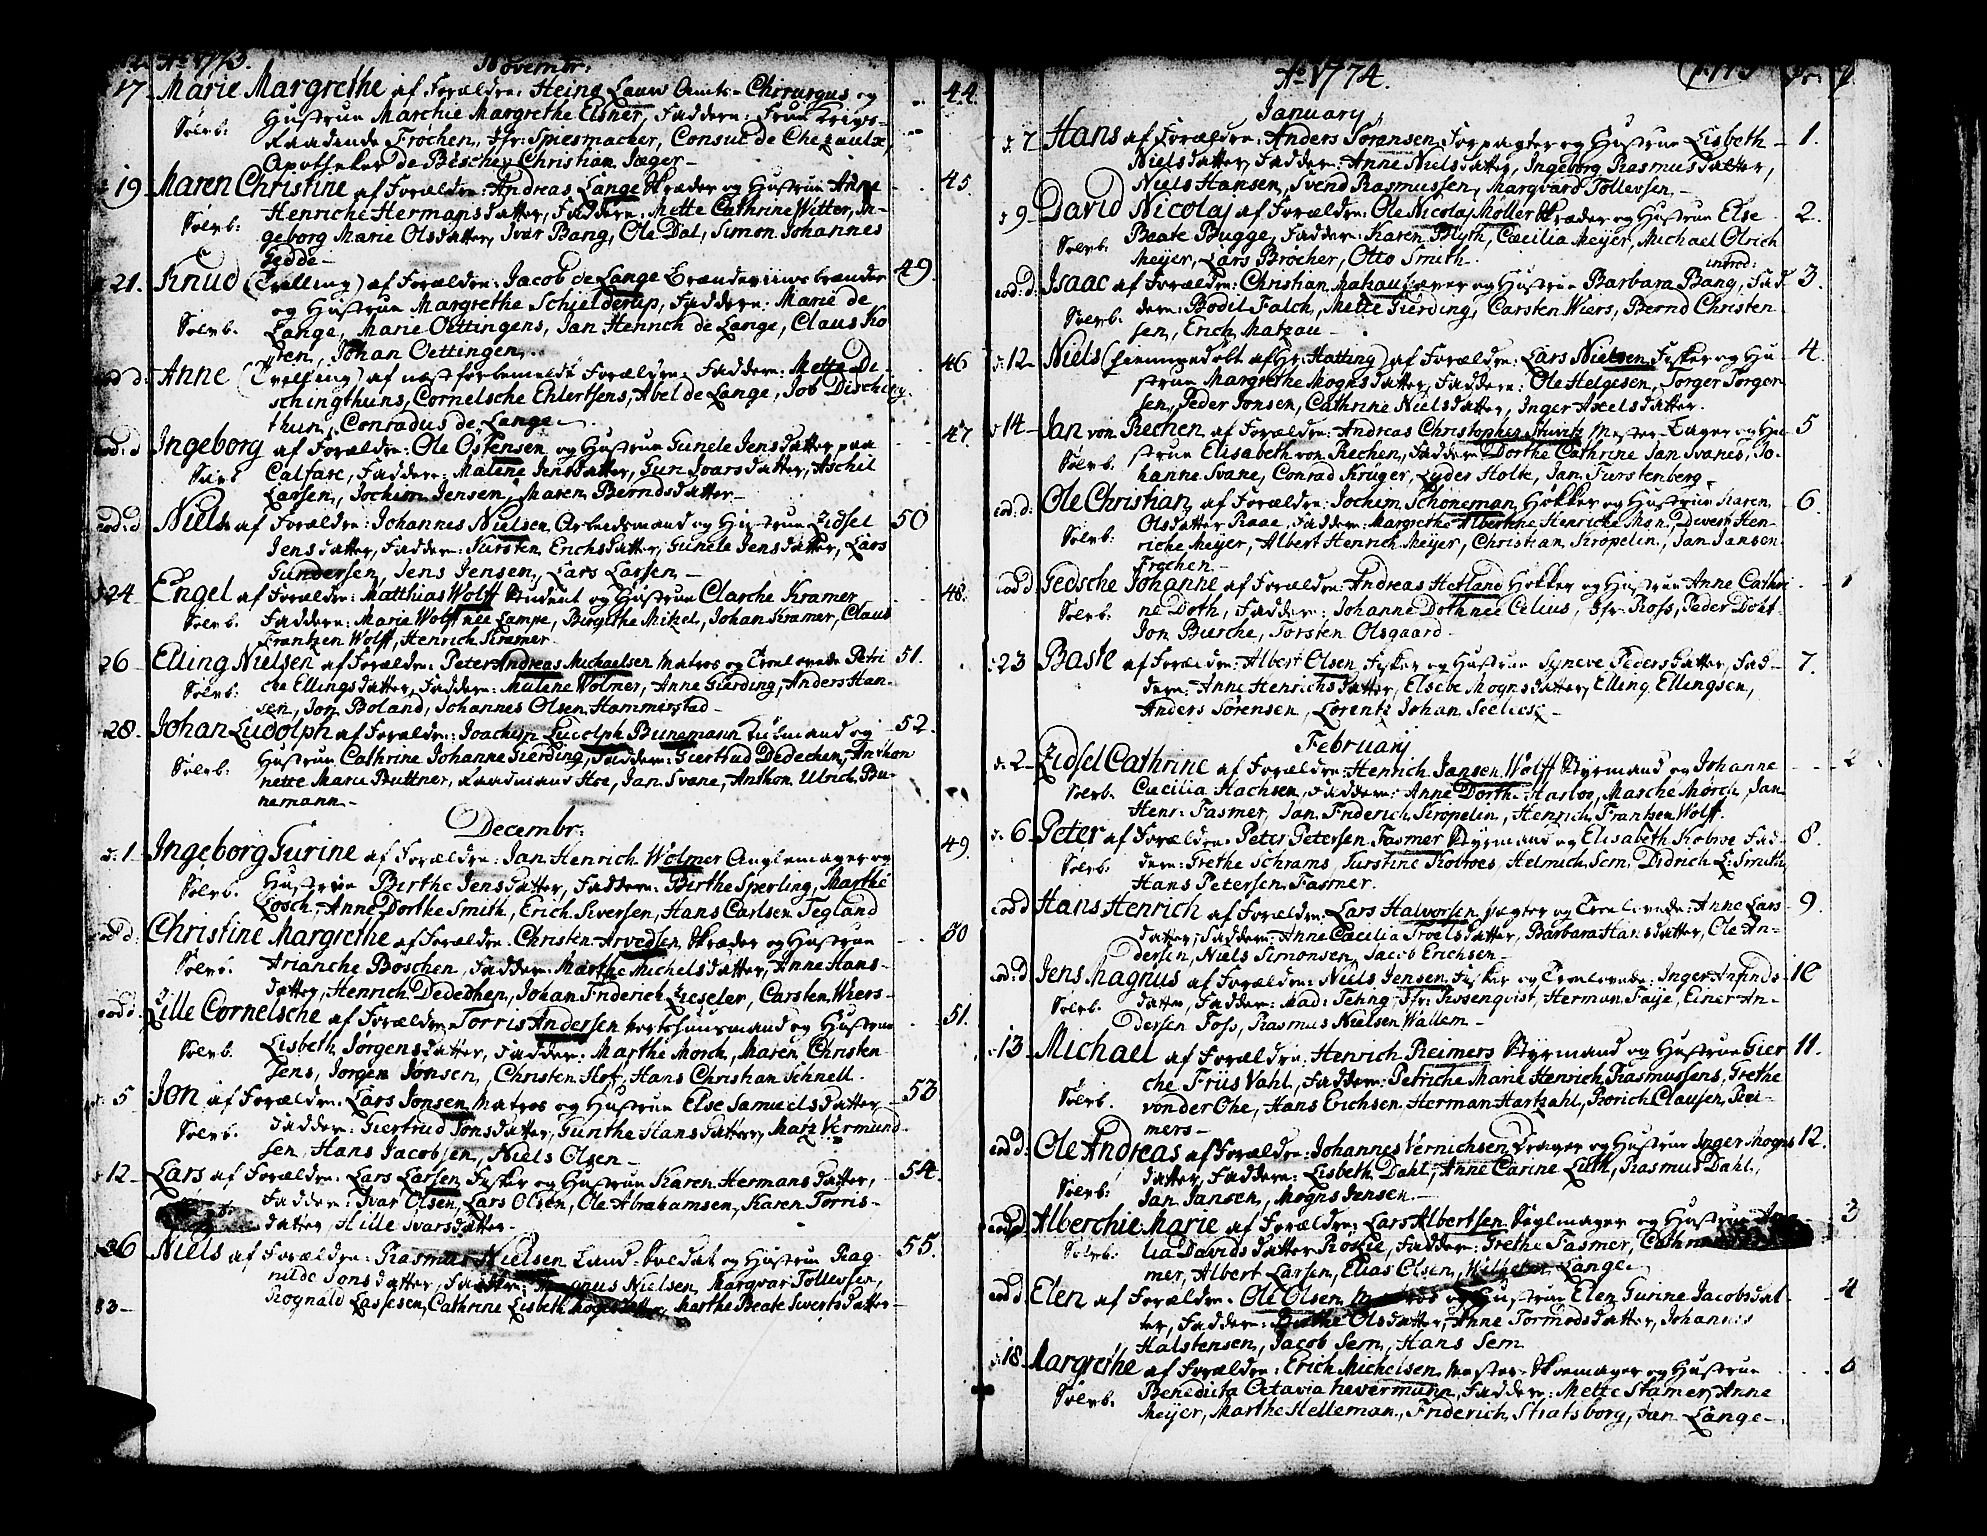 Ao 1773. Novembr:
17. Marie Margrethe af Forældre: Heins Lauw Amts-Chirurgus og 44.
Hustrue Marchie Margrethe Elsner, Faddere: Frue Krigs-
Sølvb: Raadinde Frøchen, Jfr: Spiesmacher, Consul de Chezaulx,
Apotheker de Besche, Christian Jæger
19 Maren Christine af Forældre: Andreas Lange Skræder og Hustrue Anne 45.
Henriche Hermansdatter, Faddere: Mette Cathrine Witter, In-
Sølvb: geborg Marie Olsdatter, Ivar Bang, Ole Dal, Simon Johannes
Gedde
21. Knud (Tvilling) af Forældre: Jacob de Lange Brændeviinsbrænder 49.
og Hustrue Margrethe Schielderup, Faddere: Marie de
Sølvb. Lange, Marie Oettingens, Jan Henrich de Lange, Claus Ko
ren, Johan Oettingen
eod d: Anne (Tvilling) af næstforbemeldte Forældre; Faddere: Mette Di- 46
schingthuns, Cornelsche Ehlertsens, Abel de Lange, Job Discheng-
thun, Conradus de Lange
eod: d Ingeborg af Forældre: Ole Ostensen og Hustrue Gunele Jensdatter paa 47.
Calfare, Faddere: Malene Jensdatter, Guri Ivarsdatter, Aschil
Larsen, Jochim Jensen, Maren Berndsdatter
eod: d Niels af Forældre: Johannes Nielsen Arbeidsmand og Hustrue Zidsel 50
Jensdatter, Faddere: Kirsten Erichsdatter, Gunele Jensdatter, Lars
Gundersen, Jens Jensen, Lars Larsen
24. Engel af Forældre: Matthias Wolff Student og Hustrue Clarche Kramer 48.
Sølvb. Faddere: Marie Wolff née Lampe, Birgithe Mitzel, Johan Kramer, Claus
Frantzen Wolff, Henrich Kramer
26 Elling Nielsen af Forældre: Peter Andreas Michaelsen Matros og Trolovede Petri 51.
Sølvb: che Ellingsdatter, Faddere: Malene Wolmer, Anne Gierding, Anders Han-
sen, Jon Boland, Johannes Olsen Hammerstad
28. Johan Ludolph af Forældre: Joachim Ludolph Bunemann Huusmand og 52.
Hustrue Cathrine Johanne Gierding, Faddere: Giertrud Dedechen, Anthon
Sølvb: nette Marie Buttner, Raadmand Hoe, Jan Svane, Anthon Ulrich Bu-
nemann
Decembr:
d: 1 Ingeborg Gurine af Forældre: Jan Henrich Wolmer Anglemager og 49.
Sølvb. Hustrue Birthe Jensdatter, Faddere: Birthe Sperling, Marthe
Losch, Anne Dorthe Smith, Erich Siversen, Hans Carlsen Tegland
eod d: Christine Margrethe af Forældre: Christen Arvedsen Skræder og Hustrue 50
Sølvb. Arianche Böschen, Faddere: Marthe Michelsdatter, Anne Hans-
datter, Henrich Dedechen, Johan Friderich Zieseler, Carsten Wiers
eod d: Lille Cornelsche af Forældre: Torris Andersen og Hustrue 51.
Sølvb. Lisbeth Jørgensdatter, Faddere: Marthe Morch, Maren Christen-
sens, Jørgen Jonsen, Christen Slot, Hans Christian Schnell.
d: 5 Jon af Forældre: Lars Jonsen Matros og Hustrue Else Samuelsdatter 53
Sølvb. Faddere: Giertrud Jonsdatter, Gunthe Hansdatter, Matz Vermund-
sen, Hans Jacobsen, Niels Olsen
12 Lars af Forældre: Lars Larsen Fisker og Hustrue Karen Hermansdatter, 54.
Faddere: Ivar Olsen, Lars Olsen, Ole Abrahamsen, Karen Torris-
datter, Hille Ivarsdatter
26 Niels af Forældre: Rasmus Nielsen Land-Soldat og Hustrue Rag 55.
nilde Jonsdatter, Faddere: Magnus Nielsen, Marqvar Tollevsen,
83 Rognald Lassesen, Cathrine Lisbeth Mognsdatter, Marthe Beate Sivertsdatter
Ao 1774.
January
d: 7 Hans af Forældre: Anders Sørensen Forpagter og Hustrue Lisbeth 1.
Nielsdatter, Faddere: Anne Nielsdatter, Ingeborg Rasmusdatter,
Niels Hansen, Svend Rasmussen, Marqvard Tollevsen
d 9 David Nicolaj af Forældre: Ole Nicolaj Møller Skræder og Hustrue Else 2.
Sølvb. Beate Bugge, Faddere: Karen Blyth, Cæcilia Meyer, Michael Olrich
Meyer, Lars Brocher, Otto Smith
introd:
eod: d. Isaac af Forældre: Christian Matzau og Hustrue Barbara Bang, Fad 3.
Sølvb. dere: Bodil Falch, Mette Gierding, Carsten Wiers, Bernd Christen-
sen, Erich Matzau
d: 12 Niels (hiemmedøbt af Hr: Hatting) af Forældre: Lars Nielsen Fisker og Hu- 4.
strue Margrethe Mognsdatter, Faddere: Ole Helgesen, Torger Torger-
sen, Peder Jonsen, Cathrine Nielsdatter, Inger Axelsdatter.
d 14 Jan von Rechen af Forældre: Andreas Christopher Sturtz Mester-Bager og Hu- 5
Sølvb. strue Elisabeth von Rechen, Faddere: Dorthe Cathrine Jan Svanes, Jo-
hanne Svane, Conrad Krüger, Lyder Holte, Jan Furstenberg
eod: d: Ole Christian af Forældre: Jochim Schoneman Høkker og Hustrue Karen 6.
Olsdatter Raae, Faddere: Margrethe Albertine Henriche Mon, Divert Hen-
Sølvb. riche Meyer, Albert Henrich Meyer, Christian Kropelin, Jan Jansen
Frøchen
eod d Gedsche Johanne af Forældre: Andreas Hetland Høkker og Hustrue Anne Cathri 1
Sølvb. ne Doth, Faddere: Johanne Doth née Celius, Jfr: Ross, Peder Doth
Jon Bierche, Torsten Olsgaard
d: 23 Baste af Forældre: Albert Olsen Fisker og Hustrue Synneve Pedersdatter, Fad- 7.
dere: Anne Henrichsdatter, Elsebe Mognsdatter, Elling Ellingsen,
Anders Sørensen, Lorentz Johan Seeliesch
February
d: 2 Zidsel Cathrine af Forældre: Henrich Jansen Wolff Styrmand og Johanne 2
Sølvb. Cæcilia Hachsen, Faddere: Anne Dorthe Harloe, Masche Mørch, Jan
Henr: Fasmer, Jan Friderich Kropelin, Henrich Frantzen Wolff.
d: 6 Peter af Forældre: Peter Petersen Fasmer Styrmand og Elisabeth Kobroe Fad- 8.
Sølvb. dere: Grethe Schrams, Kirstine Kobroes, Helmich Sem, Didrich L: Smith,
Hans Petersen Fasmer.
eod d Hans Henrich af Forældre: Lars Halvorsen Vægter og Trolovede: Anne Lars- 9.
datter, Faddere: Anne Cæcilia Troelsdatter, Barbara Hansdatter, Ole An-
dersen, Niels Simonsen, Jacob Erichsen
eod: d Jens Magnus af Forældre: Niels Jensen Fisker og Trolovede: Inger Arfinds- 10
Sølvb. datter, Faddere: Mad: Tehng, Jfr: Rosenqvist, Herman Faye, Einer An-
dersen Foss, Rasmus Nielsen Wallem
d: 13 Michael af Forældre: Henrich Reimers Styrmand og Hustrue Gier 11.
che Friis Vahl, Faddere: Petriche Marie Henrich Rasmussens, Grethe
Sølvb. von der Ohe, Hans Erichsen, Herman Hartzahl, Rorich Clausen Rei-
mers
eod d: Ole Andreas af Forældre: Johannes Vernichsen Drager og Hustrue Inger Mogns 12.
Sølvb: datter, Faddere: Lisbeth Dahl, Anne Carine Luth, Rasmus Dahl,
Jan Jansen, Mogns Jensen.
eod d. Alberchie Marie af Forældre: Lars Albertsen Seylmager og Hustrue 3
Sølvb. lia Davidsdatter Roskie, Faddere: Grethe Fasmer,
mer, Albert Larsen, Elias Olsen, Wilhelm Lange
eod d Elen af Forældre: Ole Olsen Matros og Hustrue Elen Gurine Jacobsdat- 4
ter, Faddere: Birthe Olsdatter, Anne Tormodsdatter, Johannes
Halstensen, Jacob Sem, Hans Sem
d: 18 Margrethe af Forældre: Erich Michelsen Mester-Skomager og Hustrue
Sølvb. Benedicta Octavia Nevermann, Faddere: Mette Stamer, Anne
Meyer, Marthe Helleman, Friderich Stratsborg, Jan Lange